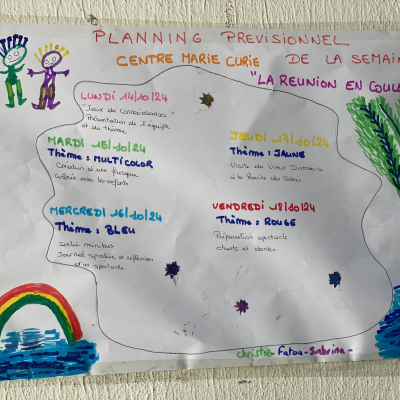 PLANNING PREVISIONNEL
CENTRE MARIE CURIE DE LA SEMAIN
"LA REUNION EN COULE
LUNDI 14/10/24
"Jeux de connaissances"
Présentation de l'équipe
et du thème
MARDI 15/10/24
Thème : MULTICOLOR
Création d'une fresque
colorée avec les enfants
MERCREDI 16/10/24
Thème : BLEU
Sortie minibus
Journée sportive et réflexion
d'un spectacle
JEUDI 17/10/24
Thème : JAUNE
Visite du Vieux Domaine
à la Ravine des Cabris
VENDREDI 18/10/24
Thème : ROUGE
Préparation spectacle
chants et danses
Christie Fatou-Sabrina-